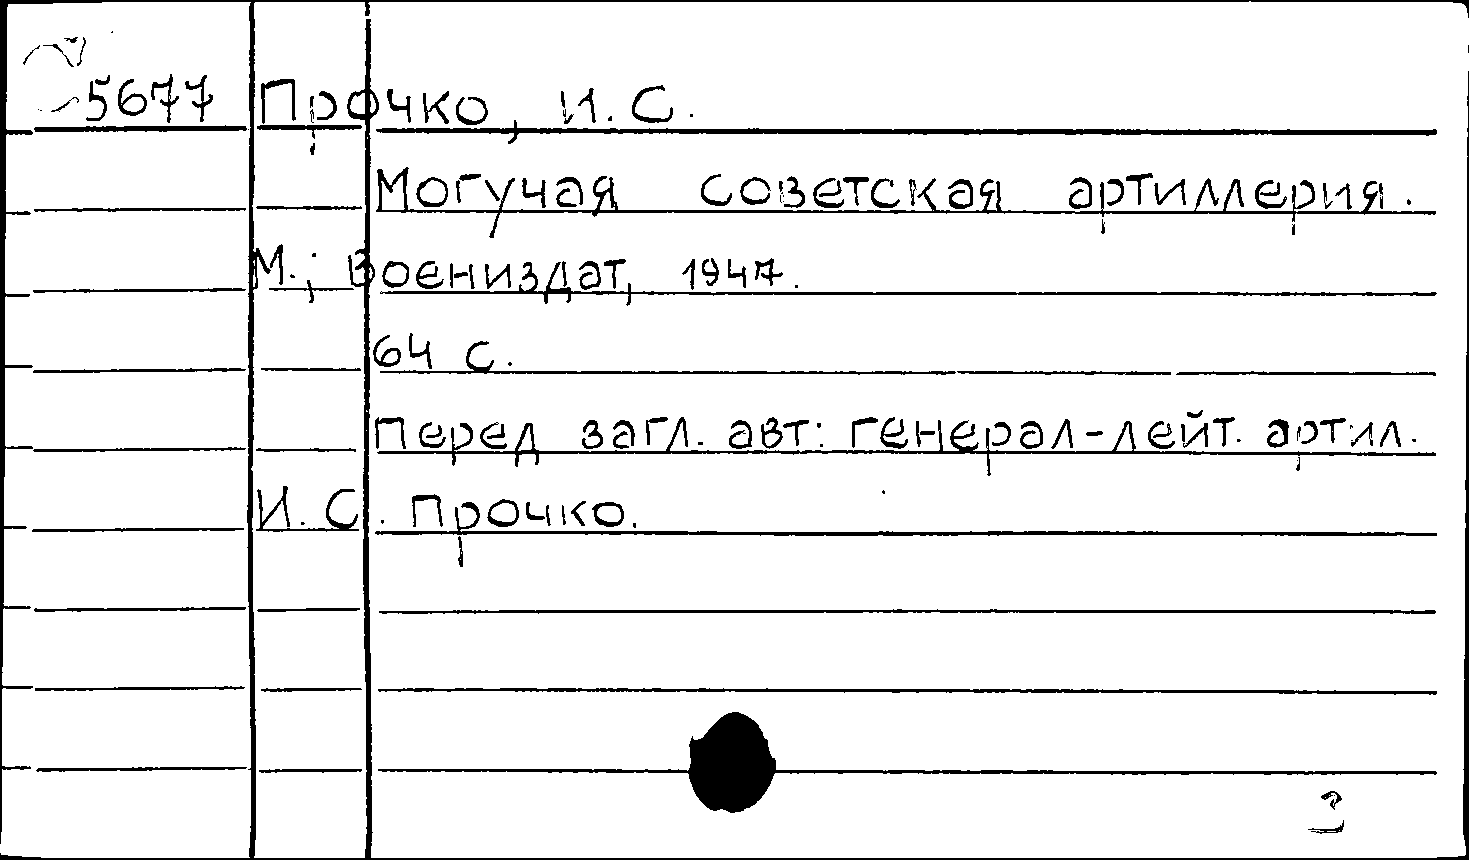 5677 Прочко, И. С.
Могучая советская артиллерия.
М.; Воениздат, 1947.
64 с.
Перед загл. авт: генерал-лейт. артил.
И. С. Прочко.